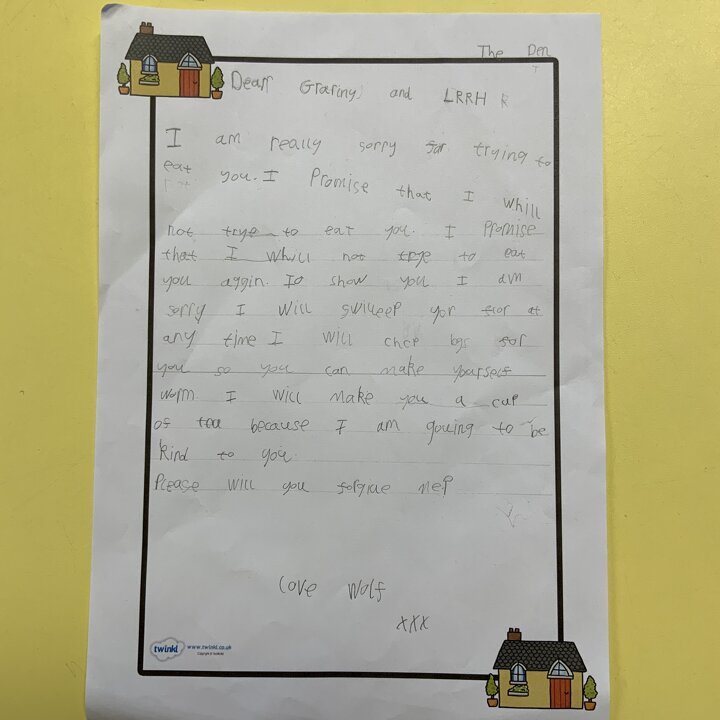 The Den
Dear Grariny and LRRH
I am really sorry for trying to
eat you. I Promise that I whill
not trye to eat you. I Promise
that I whill not trye to eat
you aggin. To show you I am
sorry I will swilleep yor flor at
any time I will chop logs for
you so you can make yourself
worm. I will make you a cup
of tea because I am gouing to be
kind to you.
Please will you forgive me?
love Wolf
xxx
twinkl www.twinkl.co.uk